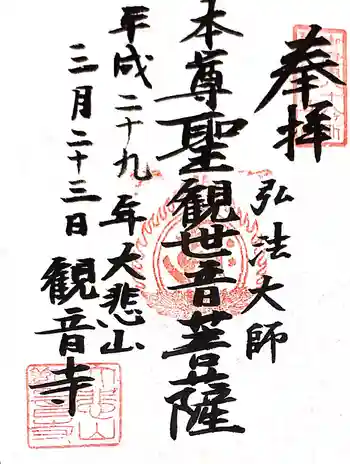 奉拝
弘法大師
本尊聖観世音菩薩
平成二十九年大悲山
三月二十三日観音寺